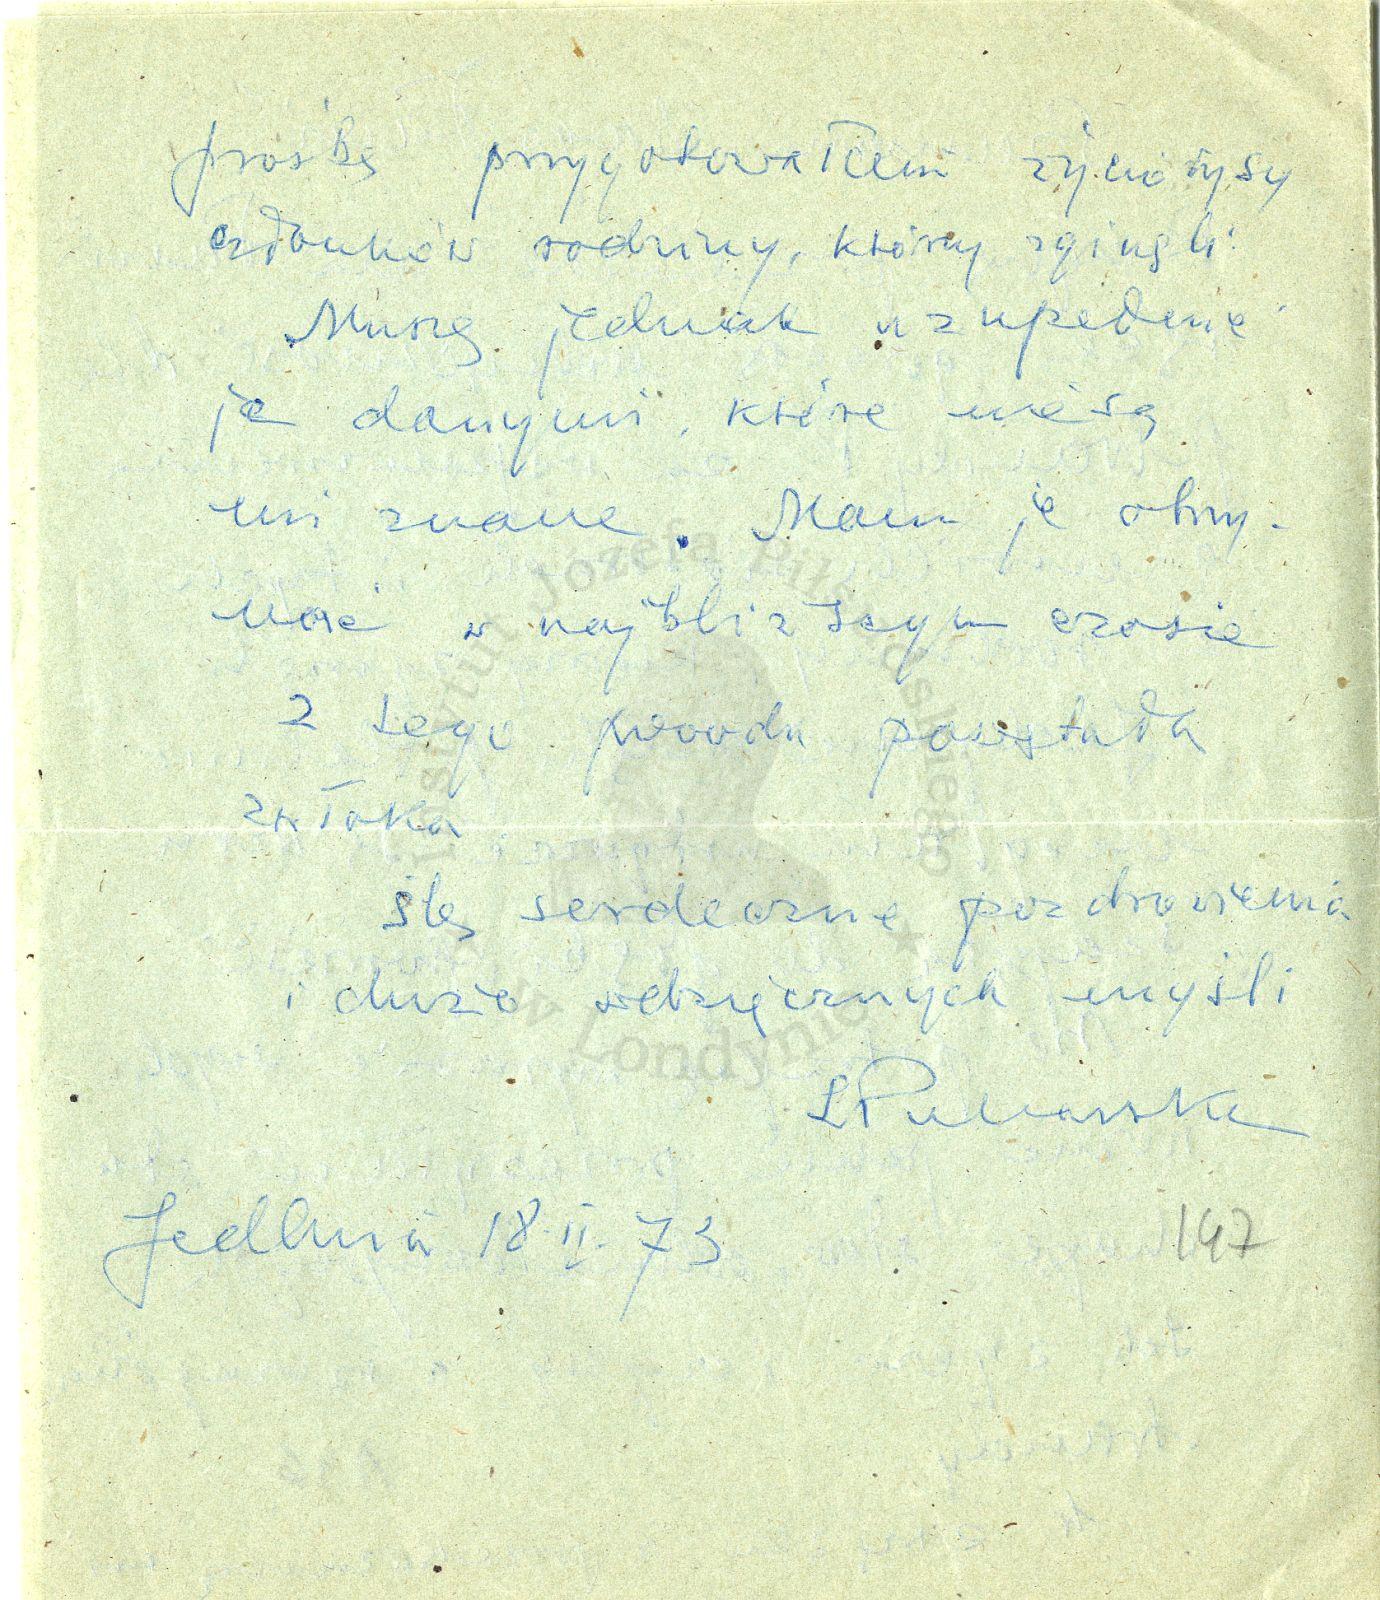 prośbę przygotowałem życiorysy
członków rodziny, którzy zginęli.
Muszę jednak uzupełnić
je danymi, które nie są
mi znane. Mam je otrzy-
mać w najbliższym czasie
Z tego powodu powstała
zwłoka
Ślę serdeczne pozdrowienia
i dużo wdzięcznych myśli
Jedlnia 18.II.73
147
Instytut Józefa Piłsudskiego
w Londynie